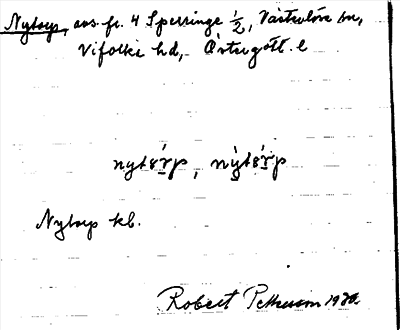 Nytorp, avs. fr. 4 Sperringe ½, Västralösa sn,
Vifolka hd, Östergötl. l
nytɤrp, nỳtɤrp
Nytorp kb.
Robert Petterson